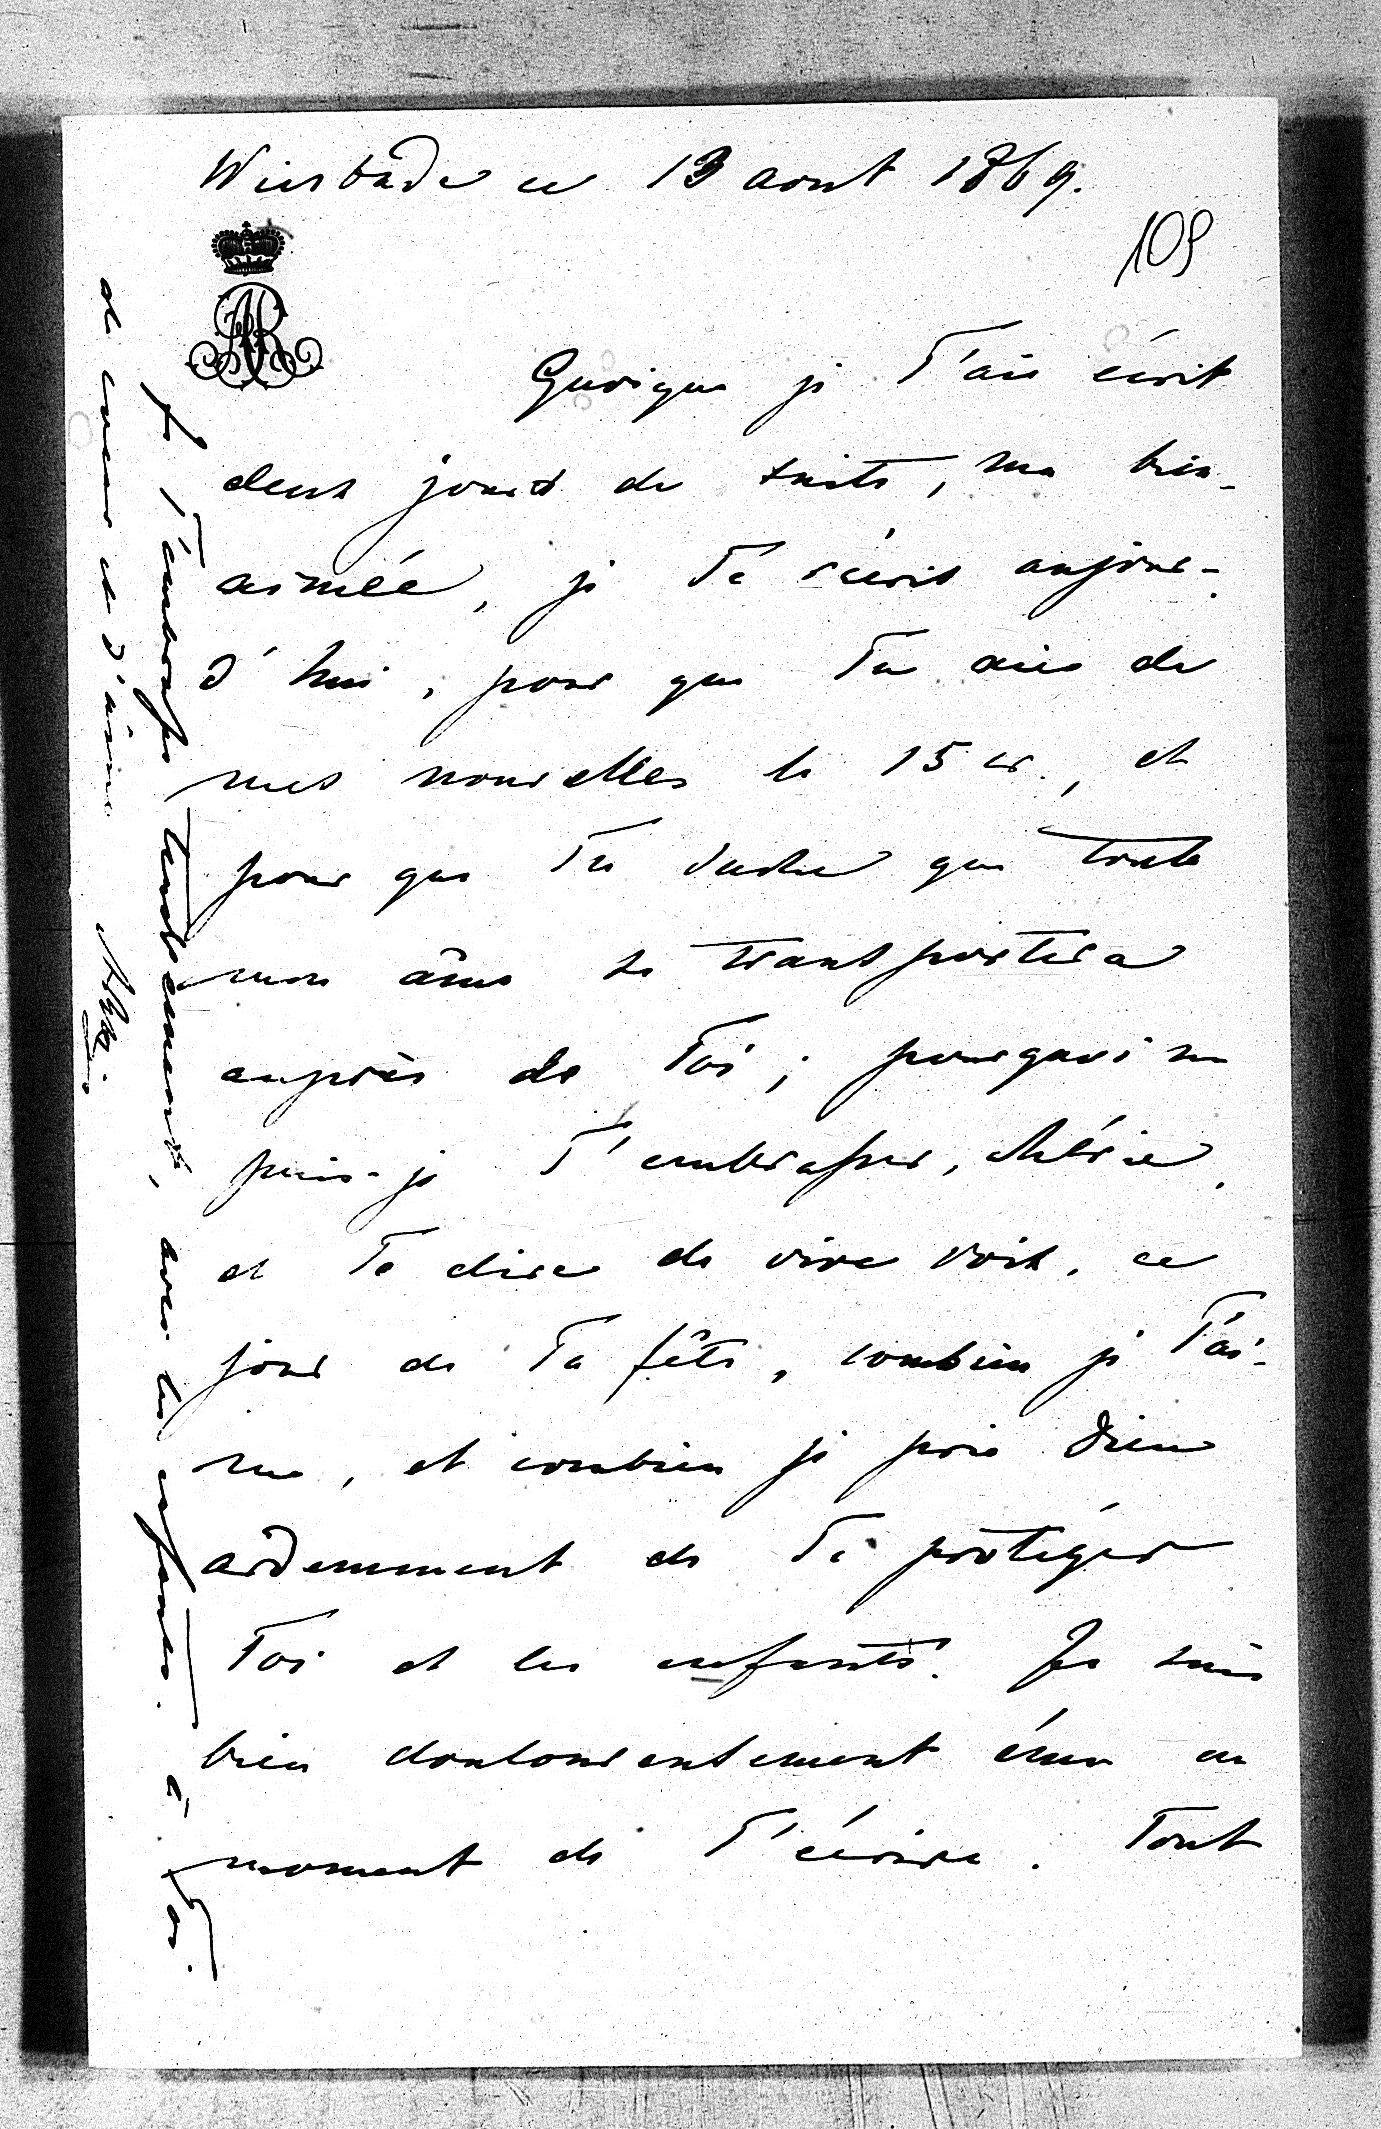 Wiesbade ce 13 aout 1869.
109
Quoique je T'aie écrit
deux jours de suite, ma bien-
aimée, je Te récris aujour-
d'hui, pour que Tu aies de
mes nouvelles le 15 cr., et
pour que Tu sache que toute
mon âme se transportera
auprès de Toi; pourquoi ne
puis-je T'embrasser, chérie,
et Te dire de vive voix, ce
jour de Ta fête, combien je T'ai-
me, et combien je prie Dieu
ardemment de Te protéger
Toi et les enfants. Je suis
bien douloureusement émue au
moment de T'écrire. Tout
Je T'embrasse tendrement, avec les enfants. à Toi
de coeur et d'âme